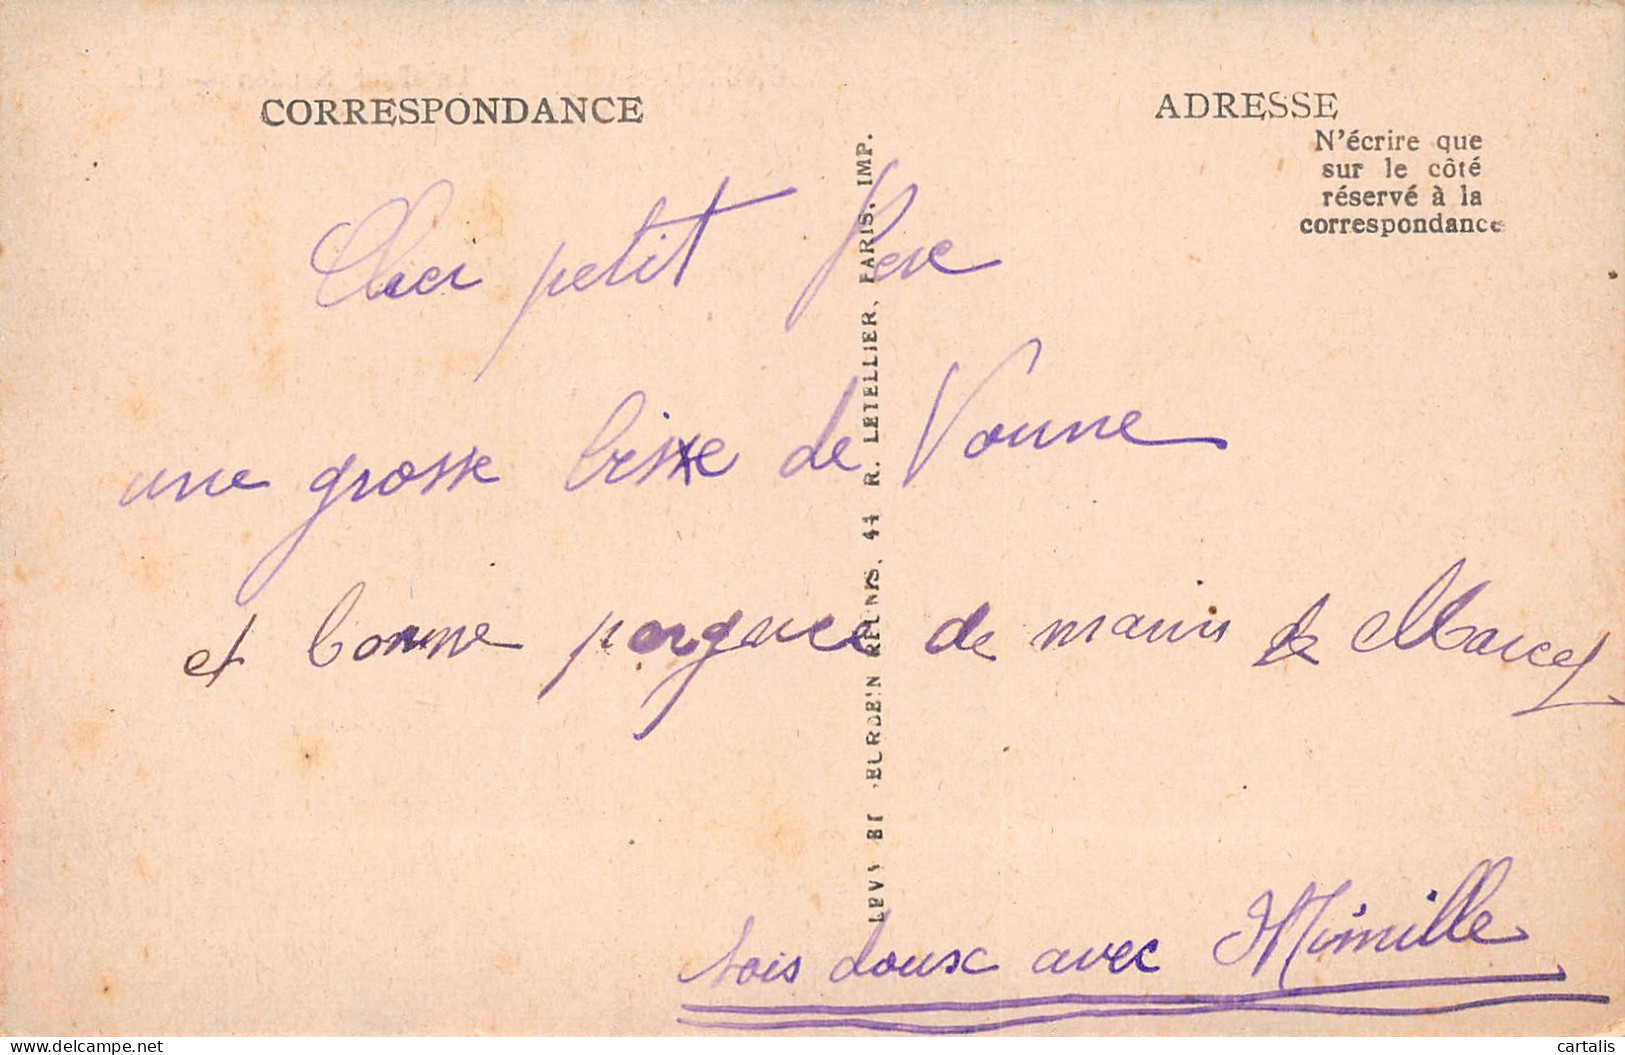 CORRESPONDANCE
ADRESSE
N'écrire que
sur le côté
réservé à la
correspondance
Cher petit Père
une grosse bise de Vonne
et bonne de main de Marcel
sois doux avec Mimille
LEVY ET NEURDEIN RÉUNIS, 44 R. LETELLIER, PARIS. IMP.
cartalis
delcampe.net